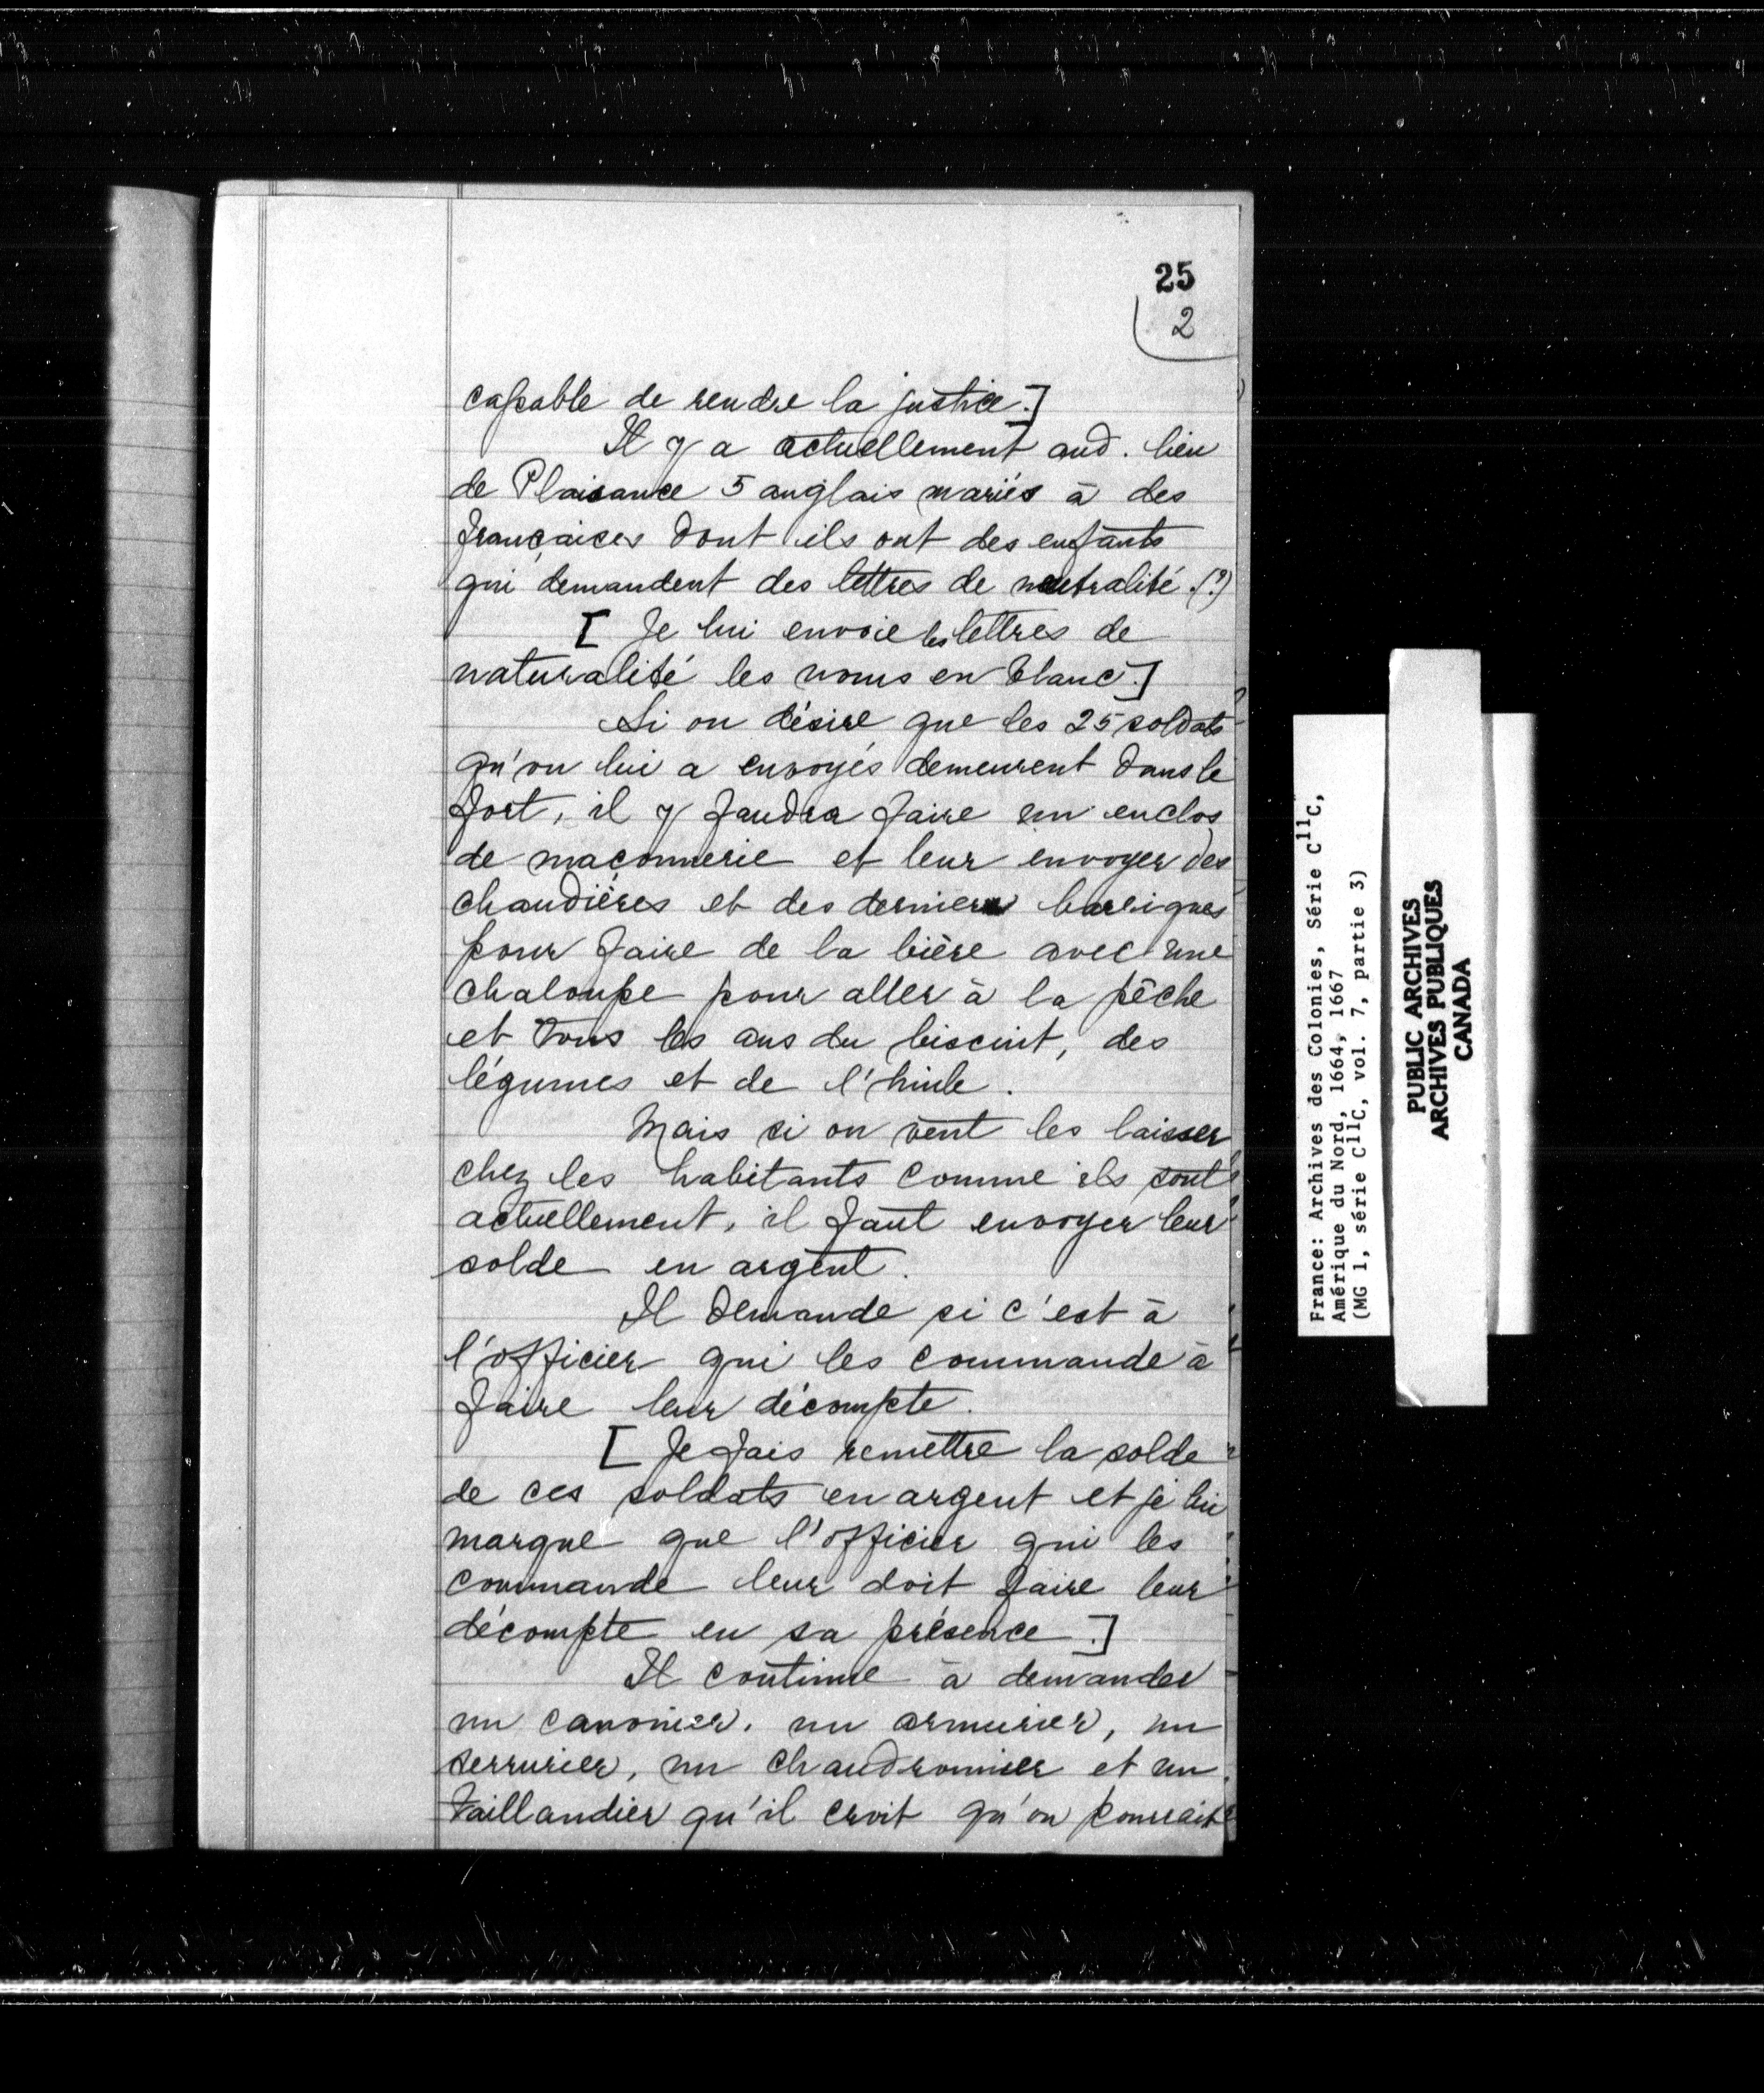 25
2
capable de rendre la justice.]
Il y a actuellement aud. lieu
de Plaisance 5 anglais mariés à des
françaises dont ils ont des enfants
qui demandent des lettres de neutralité.(?)
[ Je lui envoie les lettres de
naturalité les noms en blanc.]
Si on désire que les 25 soldats
qu'on lui a envoyés demeurent dans le
fort, il y faudra faire un enclos
de maçonnerie et leur envoyer des
chaudières et des derniers barriques
pour faire de la bière avec une
chaloupe pour aller à la pêche
et tous les ans du biscuit, des
légumes et de l'huile.
Mais si on veut les laisser
chez les habitants comme ils sont
actuellement, il faut envoyer leur
solde en argent.
Il demande si c'est à
l'officier qui les commande à
faire leur décompte.
[ Je fais remettre la solde
de ces soldats en argent et je lui
marque que l'officier qui les
commande leur doit faire leur
décompte en sa présence.]
Il continue à demander
un canonier, un armurier, un
serrurier, un chaudronnier et un
taillandier qu'il croit qu'on pourrait
France: Archives des Colonies, Série C11C,
Amérique du Nord, 1664, 1667
(MG 1, série C11C, vol. 7, partie 3)
PUBLIC ARCHIVES
ARCHIVES PUBLIQUES
CANADA